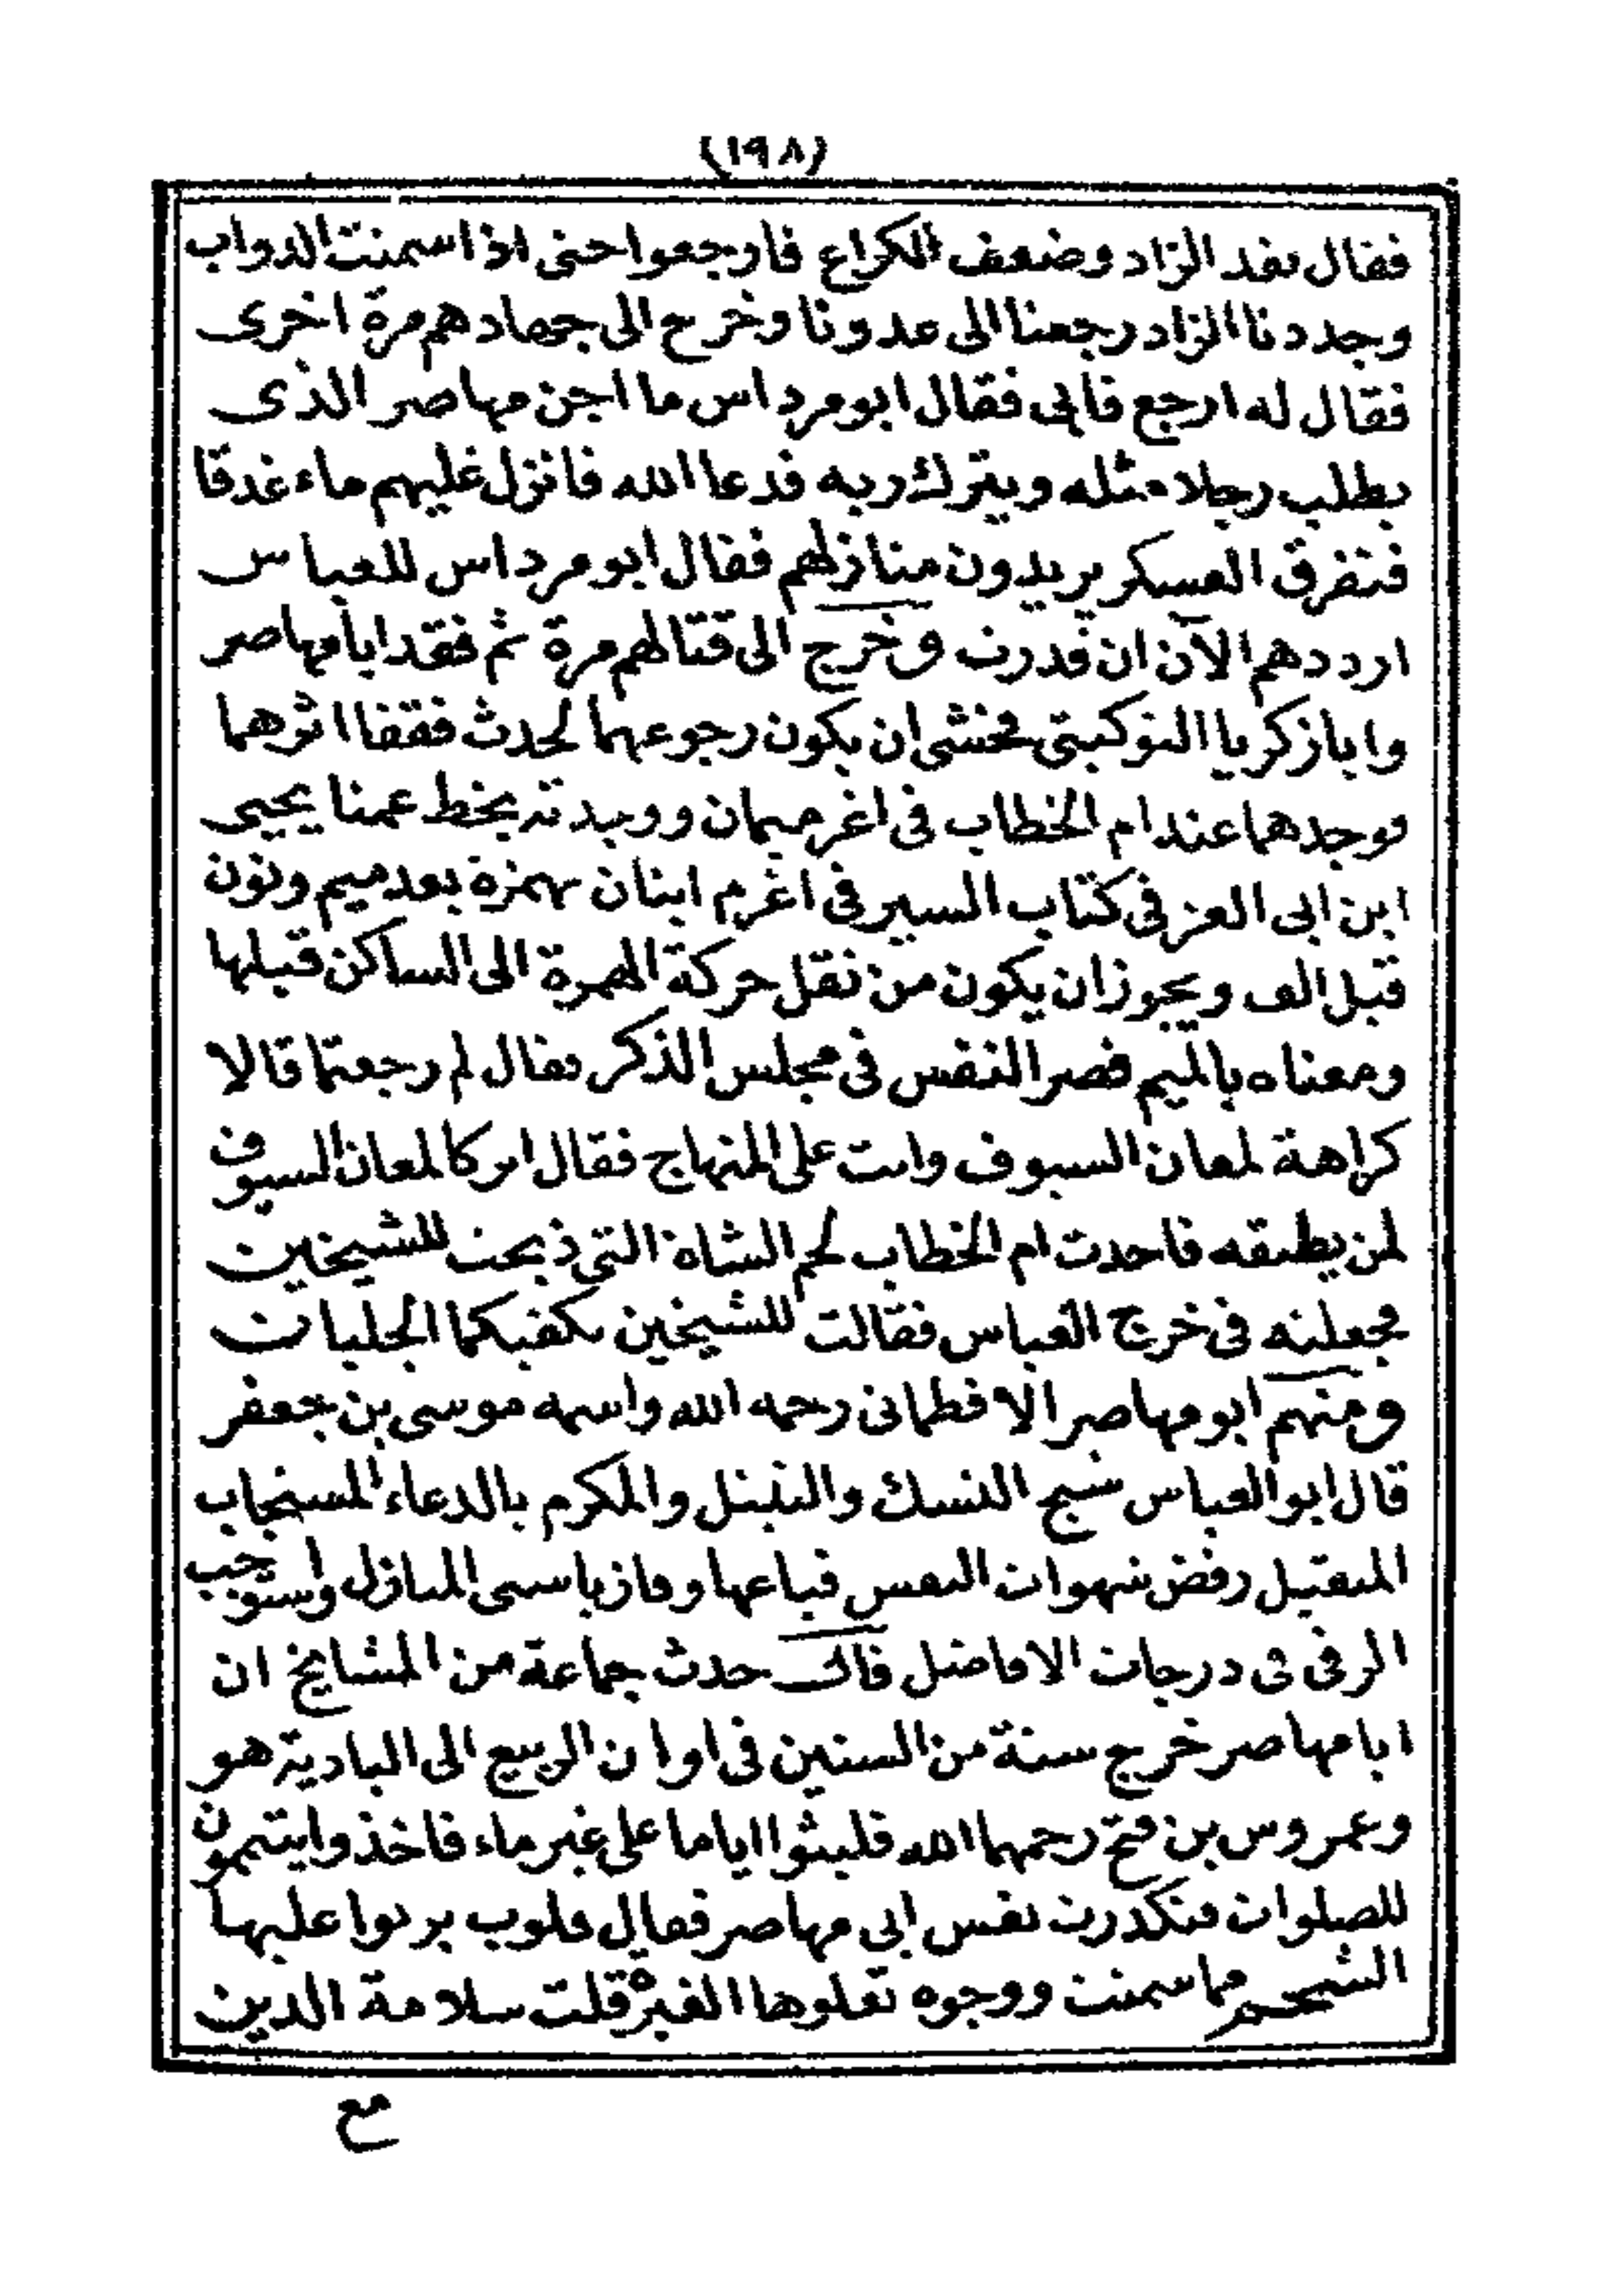 (١٩٨)
فقال نفد الزاد وضعف الكراع فارجعوا حتى اذا سمنت الدواب
وجددنا الزاد رجعنا الى عدونا وخرج الى جهادهم مرة اخرى
فقال له ارجع فابى فقال ابو مرداس ما اجن مهاصر الذى
يطلب رجلا مثله ويترك ربه فدعا الله فانزل عليهم ماء غدقا
فتفرق العسكر يريدون منازلهم فقال ابو مرداس للعباس
ارددهم الآن ان قدرت وخرج الى قتالهم مرة ثم فقد ابا مهاصر
وابا زكريا التوكيتى فخشى ان يكون رجوعهما لحدث فقفا اثرهما
فوجدهما عند ام الخطاب فى اغرميمان ووجدته بخط عمنا يحيى
ابن ابى العز فى كتاب السير فى اغرم اينان بهمزة بعد ميم ونون
قبل الف ويجوز ان يكون من نقل حركة الهمزة الى الساكن قبلها
ومعناه بالميم قصر النفس فى مجلس الذكر فقال لم رجعتما قالا
كراهة لمعان السيوف وانت على المنهاج فقال اتركا لمعان السيوف
لمن يطيقه فاخذت ام الخطاب لحم الشاة التى ذبحت للشيخين
فجعلته فى خرج العباس فقالت للشيخين تكفيكما الجلبات
ومنهم ابو مهاصر الافطمانى رحمه الله واسمه موسى بن جعفر
قال ابو العباس شيخ التنسك والتبتل والمكرم بالدعاء المستجاب
المتقبل رفض شهوات النفس فباعها وفاز باسمى المنازل واستوجب
الرقى فى درجات الافاضل قال حدث جماعة من المشايخ ان
ابا مهاصر خرج سنة من السنين فى اوان الربيع الى البادية هو
وعمروس بن فتح رحمهما الله فلبثوا اياما على غير ماء فاخذوا يتيممون
للصلوات فتكدرت نفس ابى مهاصر فقال قلوب يربوا عليها
الشحم ما سمنت ووجوه تعلوها الغبرة قلت سلامة الدين
مع